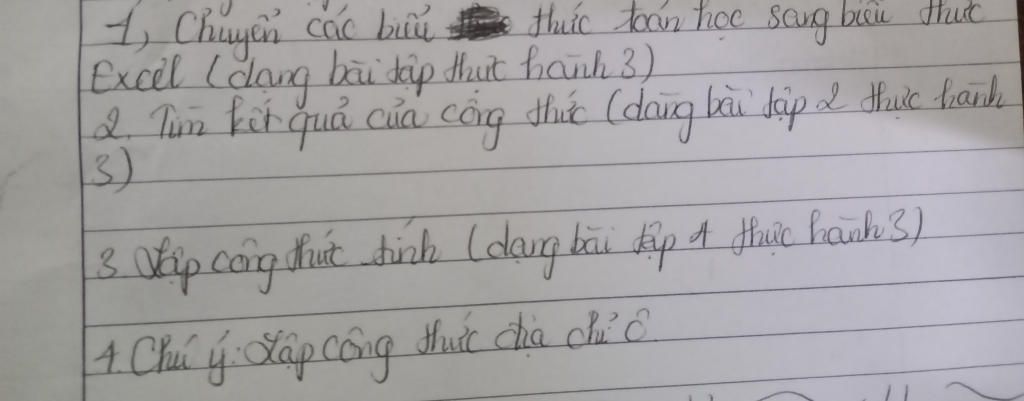 1, Chuyển các biểu thức toán học sang biểu thức
Excel (dạng bài tập thực hành 3)
2. Tìm kết quả của công thức (dạng bài tập 2 thực hành
3)
3 Lập công thức tính (dạng bài tập 4 thực hành 3)
4. Chú ý: Lập công thức địa chỉ ô